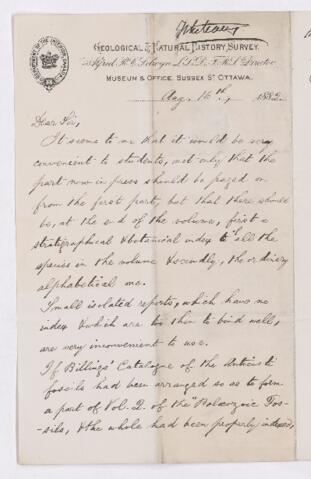 Whiteaves
GEOLOGICAL & NATURAL HISTORY SURVEY.
Alfred R. C. Selwyn L.L.D. F.R.S. Director
MUSEUM & OFFICE. SUSSEX ST OTTAWA.
DEPARTMENT OF THE INTERIOR CANADA
Aug. 16th, 1882.
Dear Sir,
It seems to me that it would be very
convenient to students, not only that the
part now in press should be paged on
from the first part, but that there should
be, at the end of the volume, first a
stratigraphical & botanical index to all the
species in the volume & secondly, the ordinary
alphabetical one.
Small isolated reports, which have no
index & which are too thin to bind well,
are very inconvenient to use.
If Billings' Catalogue of the Anticosti
fossils had been arranged so as to form
a part of Vol. 2. of the "Palæozoic Fos-
-sils, & the whole had been properly indexed,